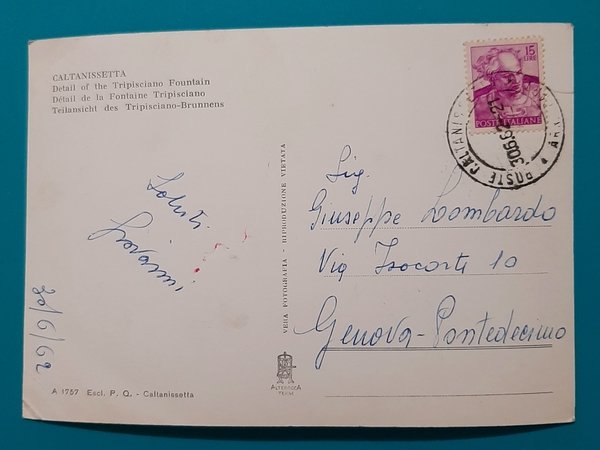 CALTANISSETTA
Detail of the Tripisciano Fountain
Détail de la Fontaine Tripisciano
Teilansicht des Tripisciano-Brunnens
15
LIRE
POSTE ITALIANE
POSTE CALTANISS
30.6.62
Saluti
Giovanni
30/6/62
VERA FOTOGRAFIA - RIPRODUZIONE VIETATA
Sig.
Giuseppe Lombardo
Via Isocorte 10
Genova-Pontedecimo
ALTEROCCA
TERNI
A 1757 Escl. P. Q. - Caltanissetta